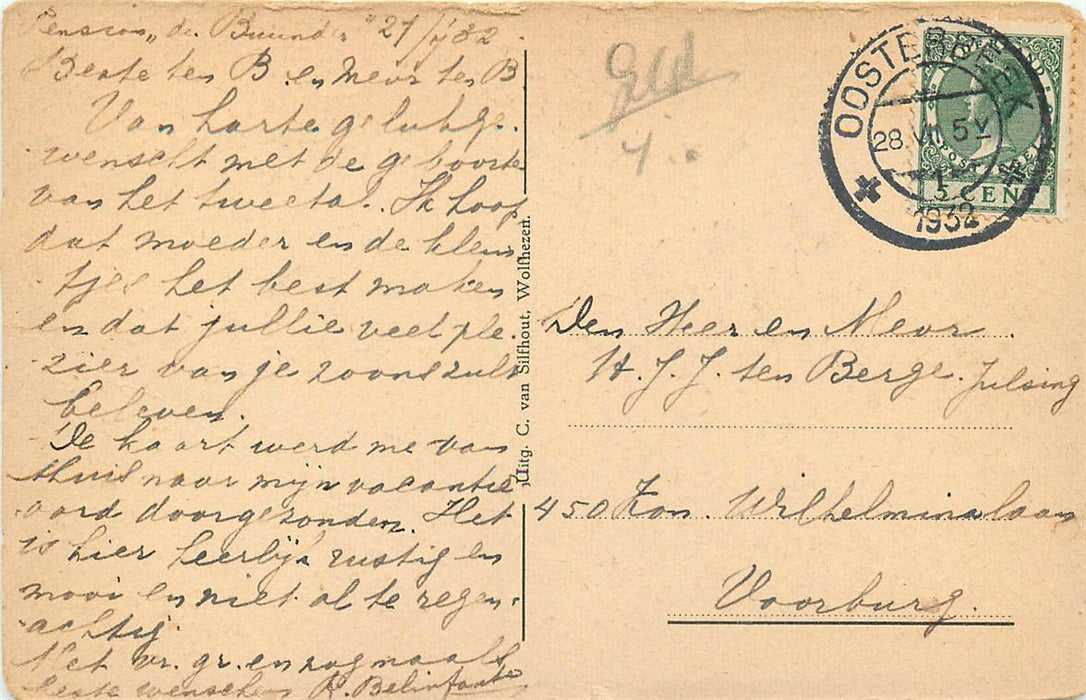 Pension „de Buunder" 27/7 '32
Beste ten B en Mevr ten B
Van harte geluktge-
wenscht met de geboorte
van het tweetal. Ik hoop
dat moeder en de klein
tjes het best maken
en dat jullie veel ple-
zier van je zoons zult
beleven.
De kaart werd me van
thuis naar mijn vacantie
oord doorgezonden. Het
is hier heerlijk rustig en
mooi en niet al te regen-
achtig.
Met vr. gr. en nogmaals
beste wenschen R. Belinfante
Uitg. C. van Silfhout, Wolfhezen.
Geld
OOSTERBEEK
28.VII 5V
1932
5 CEN
Den Heer en Mevr.
H. J. J. ten Berge. Julsing
450 Kon. Wilhelminalaan
Voorburg.